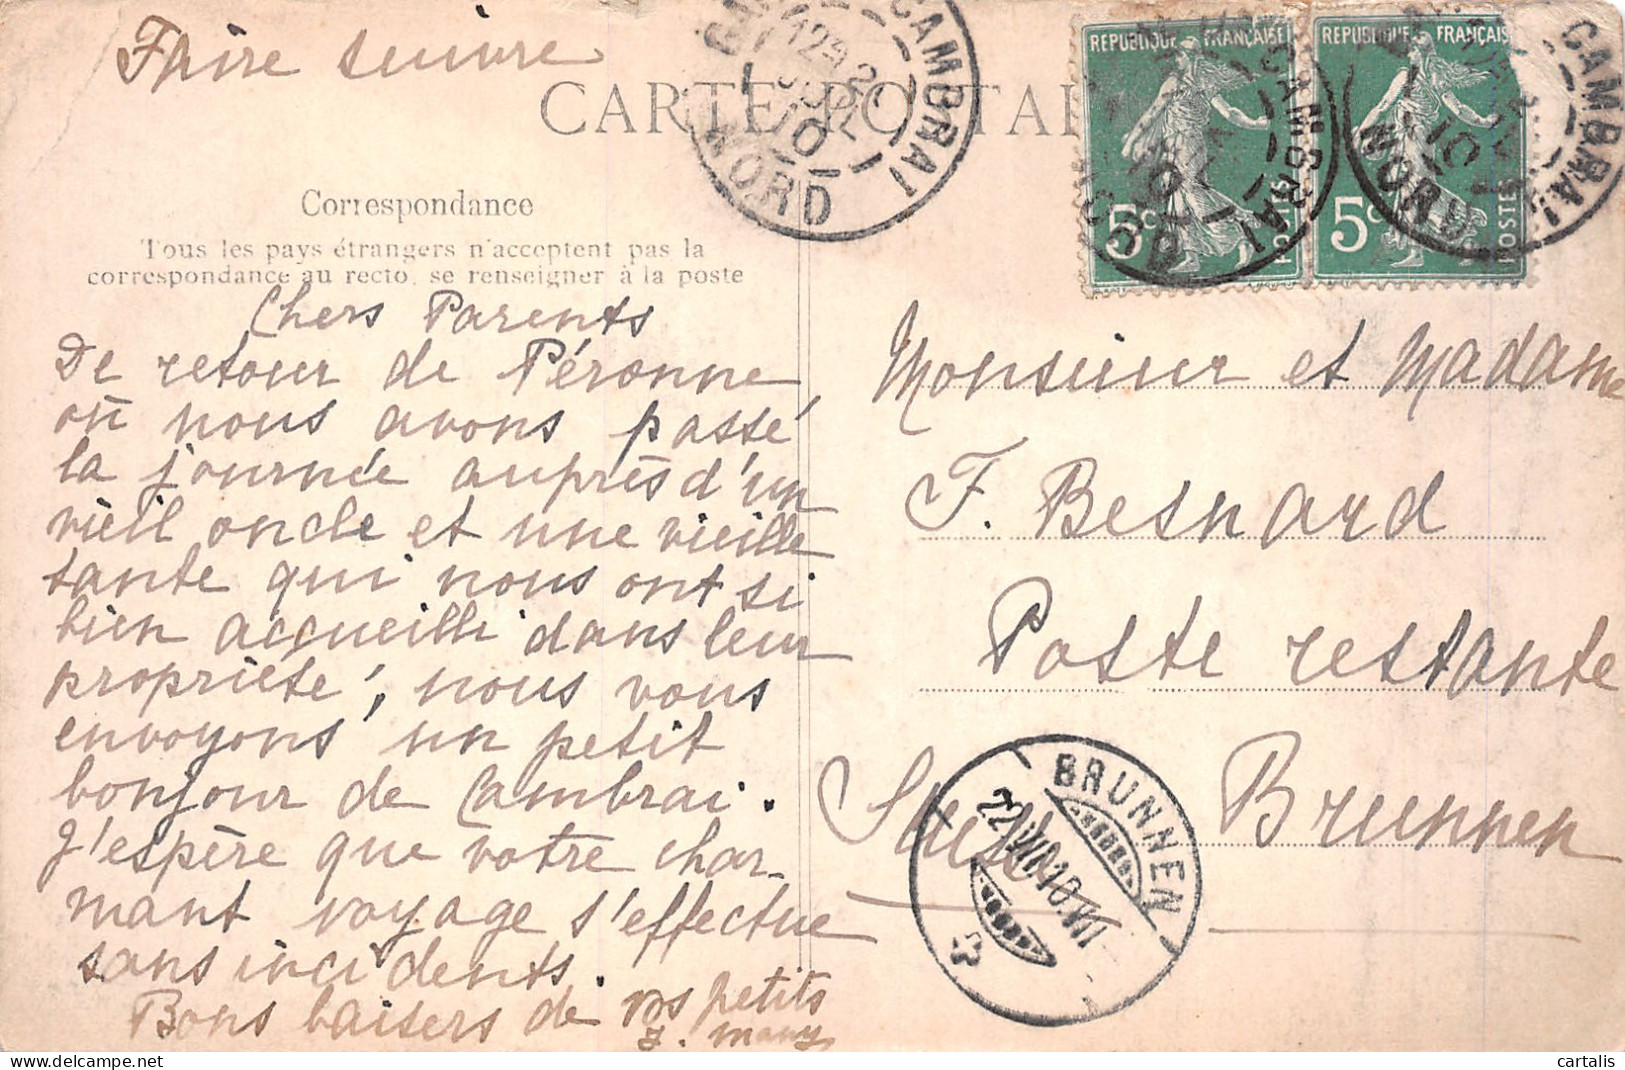 Faire suivre
CARTE POSTA
CAMBRAI
NORD
JUIL
10
REPUBLIQUE FRANÇAISE
5c
POSTES
CAMBRAI
10
REPUBLIQUE FRANÇAIS
5c
POSTES
CAMBRAI
NORD
10
Correspondance
Tous les pays étrangers n'acceptent pas la
correspondance au recto, se renseigner à la poste
Chers Parents
De retour de Péronne,
où nous avons passé
la journée auprès d'un
vieil oncle et une vieille
tante qui nous ont si
bien accueilli dans leur
propriété, nous vous
envoyons un petit
bonjour de Cambrai.
J'espère que votre char-
mant voyage s'effectue
sans incidents.
Bons baisers de vos petits
Monsieur et Madame
F. Besnard
Poste restante
Suisse Brunnen
BRUNNEN
22.VII.10.VII
cartalis